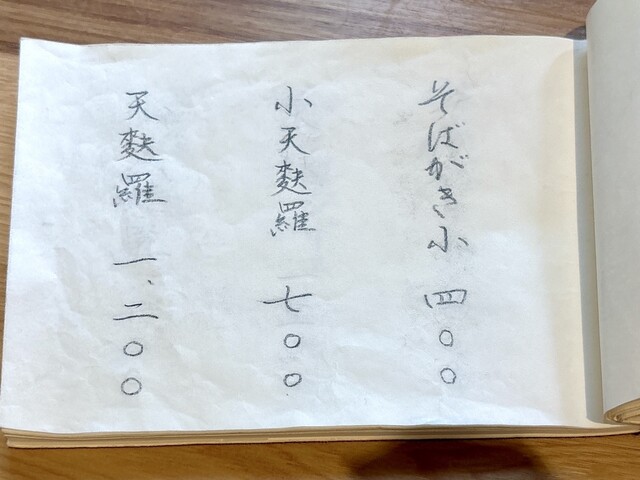 そばがき小 四〇〇
小天麩羅 七〇〇
天麩羅 一、二〇〇